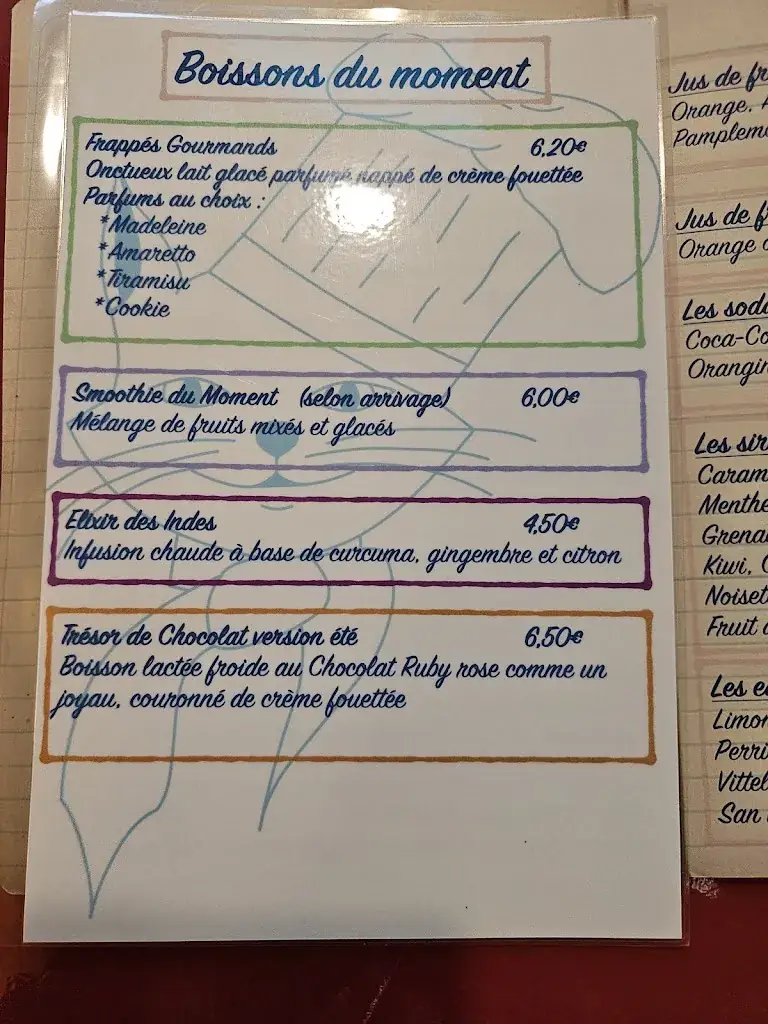 Boissons du moment
Frappés Gourmands 6,20€
Onctueux lait glacé parfumé nappé de crème fouettée
Parfums au choix :
*Madeleine
*Amaretto
*Tiramisu
*Cookie
Smoothie du Moment (selon arrivage) 6,00€
Mélange de fruits mixés et glacés
Elixir des Indes 4,50€
Infusion chaude à base de curcuma, gingembre et citron
Trésor de Chocolat version été 6,50€
Boisson lactée froide au Chocolat Ruby rose comme un
joyau, couronné de crème fouettée
Jus de
Orange,
Jus de
Orange
Les
Les
Kiwi,
Fruit
Les
San